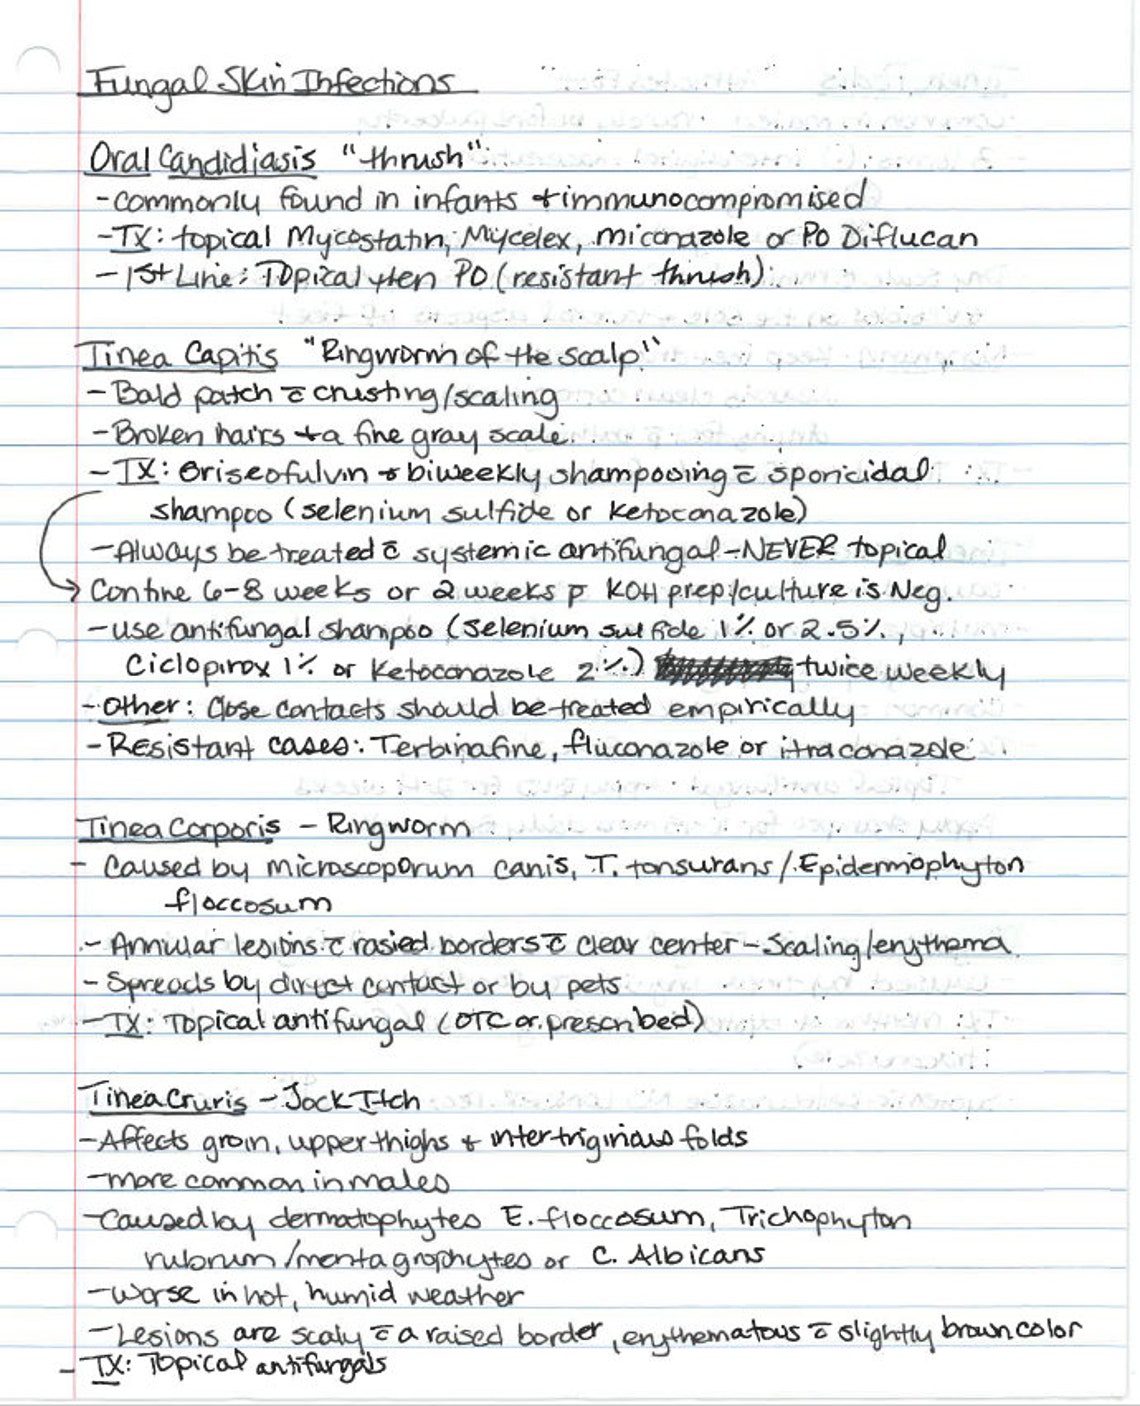 Fungal Skin Infections
Oral Candidiasis "thrush"
- commonly found in infants + immunocompromised
- TX: topical Mycostatin, Mycelex, miconazole or PO Diflucan
- 1st Line: Topical, then PO (resistant thrush)
Tinea Capitis "Ringworm of the scalp"
- Bald patch c̄ crusting/scaling
- Broken hairs + a fine gray scale
- TX: Griseofulvin + biweekly shampooing c̄ sporicidal
shampoo (selenium sulfide or ketoconazole)
- Always be treated c̄ systemic antifungal - NEVER topical
→ Contine 6-8 weeks or 2 weeks p̄ KOH prep/culture is Neg.
- use antifungal shampoo (selenium sulfide 1% or 2.5%,
Ciclopirox 1% or Ketoconazole 2%) twice weekly
- Other: Close contacts should be treated empirically
- Resistant cases: Terbinafine, fluconazole or itraconazole
Tinea Corporis - Ringworm
- Caused by microscoporum canis, T. tonsurans/Epidermophyton
floccosum
- Annular lesions c̄ rasied borders c̄ clear center - Scaling/erythema
- Spreads by direct contact or by pets
- TX: Topical antifungal (OTC or prescribed)
Tinea Cruris - Jock Itch
- Affects groin, upper thighs + intertriginous folds
- more common in males
- Caused by dermatophytes E. floccosum, Trichophyton
rubrum/mentagrophytes or C. Albicans
- worse in hot, humid weather
- Lesions are scaly c̄ a raised border, erythematous c̄ slightly brown color
- TX: Topical antifungals